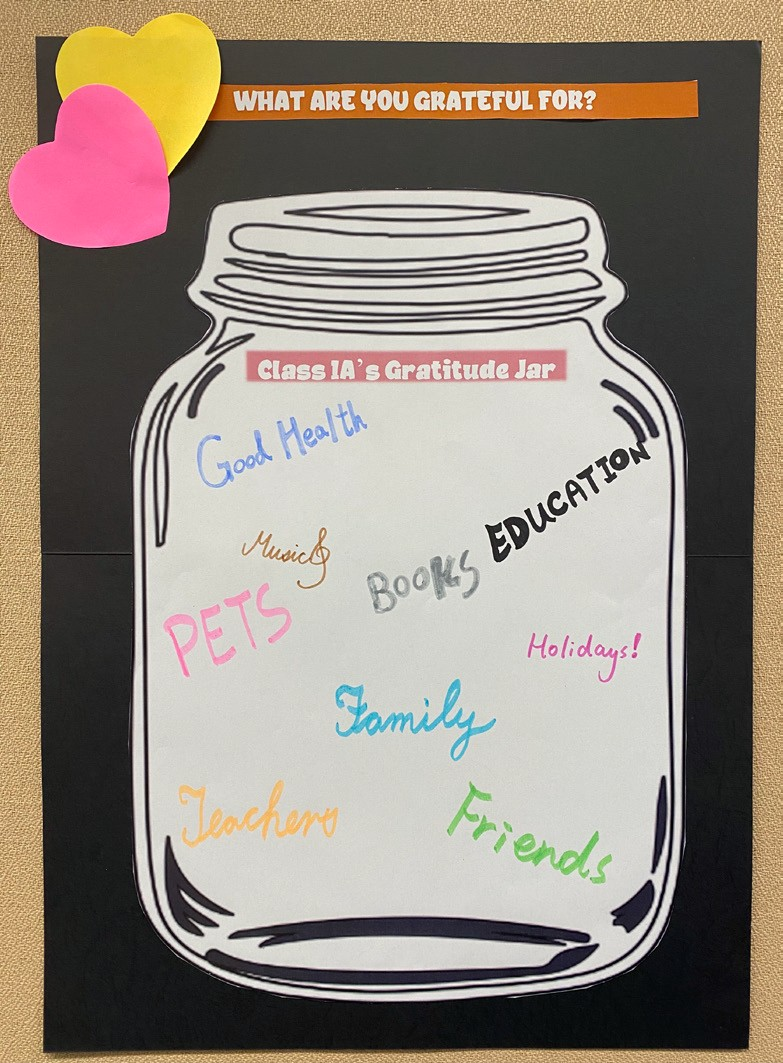 WHAT ARE YOU GRATEFUL FOR?
Class 1A's Gratitude Jar
Good Health
EDUCATION
Music
BOOKS
PETS
Holidays!
Family
Teachers
Friends